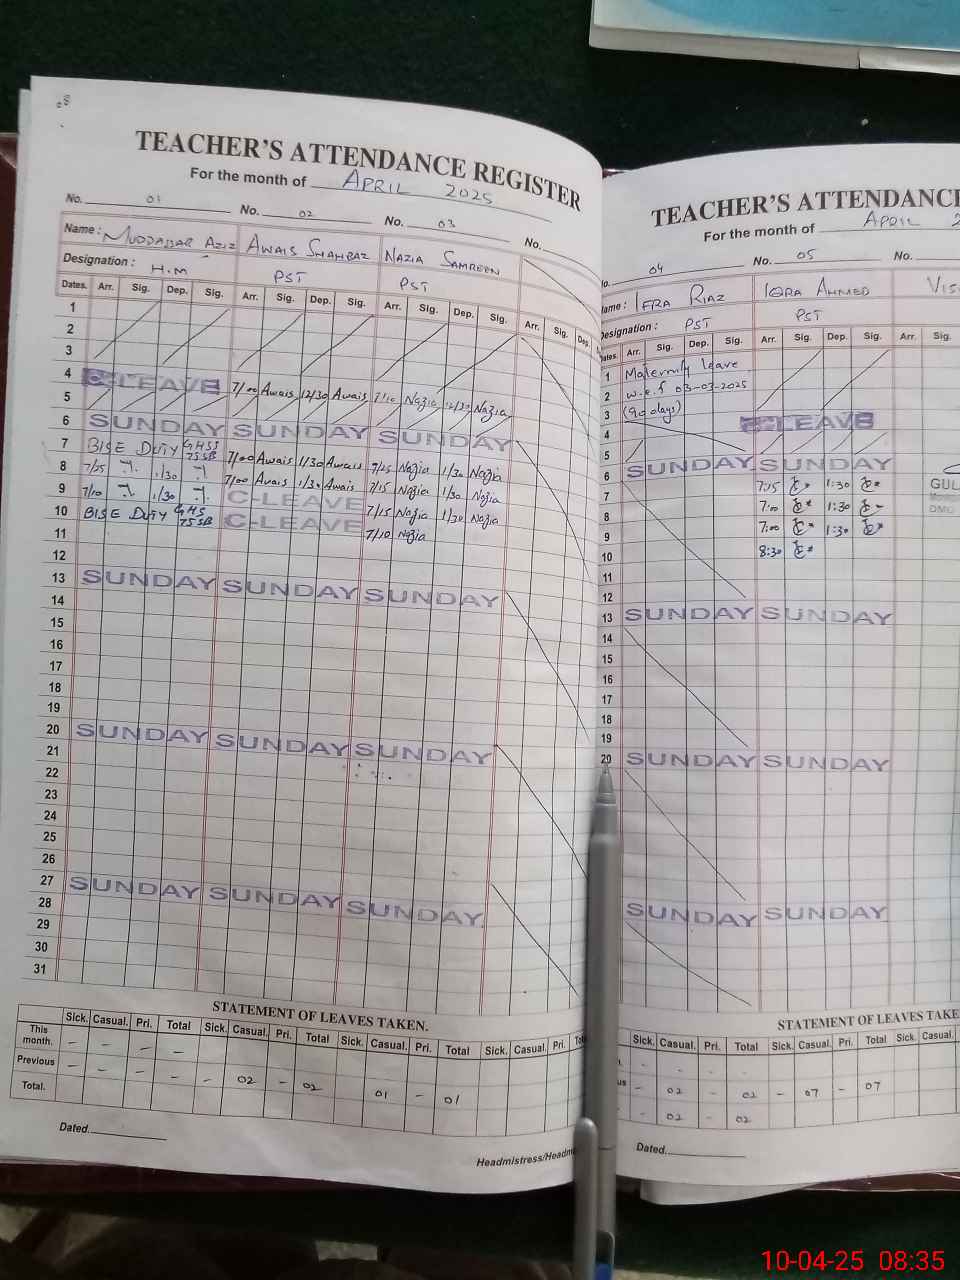 TEACHER'S ATTENDANCE REGISTER
For the month of APRIL 2025
No. 01 No. 02 No. 03 No.
Name: MUDDASSAR AZIZ AWAIS SHAHBAZ NAZIA SAMREEN
Designation: H.M PST PST
Dates. Arr. Sig. Dep. Sig. Arr. Sig. Dep. Sig. Arr. Sig. Dep. Sig. Arr. Sig. Dep.
1
2
3
4 C-LEAVE 7/00 Awais 12/30 Awais 7/10 Nazia 12/30 Nazia
5
6 SUNDAY SUNDAY SUNDAY
7 BISE DUTY GHSS 75 SB 7/00 Awais 1/30 Awais 7/15 Nazia 1/30 Nazia
8 7/25 1/30 7/00 Awais 1/30 Awais 7/15 Nazia 1/30 Nazia
9 7/10 1/30 C-LEAVE 7/15 Nazia 1/30 Nazia
10 BISE DUTY GHS 75 SB C-LEAVE 7/10 Nazia
11
12
13 SUNDAY SUNDAY SUNDAY
14
15
16
17
18
19
20 SUNDAY SUNDAY SUNDAY
21
22
23
24
25
26
27 SUNDAY SUNDAY SUNDAY
28
29
30
31
STATEMENT OF LEAVES TAKEN.
Sick. Casual. Pri. Total Sick. Casual. Pri. Total Sick. Casual. Pri. Total Sick. Casual. Pri.
This month. - - - -
Previous - - - - - 02 - 02 01 - 01
Total.
Dated.
Headmistress/
TEACHER'S ATTENDANCE
For the month of APRIL
04 No. 05 No.
Name: IFRA RIAZ IQRA AHMED
Designation: PST PST
Arr. Sig. Dep. Sig. Arr. Sig. Dep. Sig. Arr. Sig.
1 Maternity leave
2 w.e.f 03-03-2025
3 (90 days)
4 C-LEAVE
5
6 SUNDAY SUNDAY
7 7:15 1:30
8 7:00 1:30
9 7:00 1:30
10 8:30
11
12
13 SUNDAY SUNDAY
14
15
16
17
18
19
20 SUNDAY SUNDAY
SUNDAY SUNDAY
GUL
DMO
STATEMENT OF LEAVES
Sick. Casual. Pri. Total Sick. Casual. Pri. Total Sick. Casual.
- - - -
- 02 - 02 - 07 - 07
- 02 - 02
Dated.
10-04-25 08:35